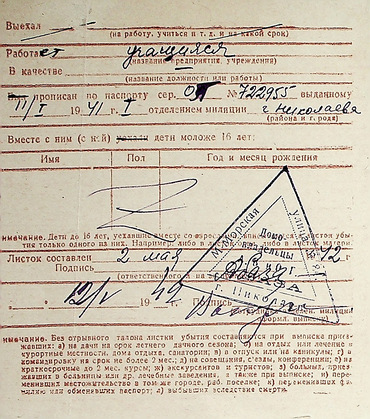 Выехал
(на работу, учиться и т. д. и на какой срок)
Работает учащийся
(название предприятия, учреждения)
В качестве
(название должности или работы)
прописан по паспорту сер. № 722955 выданному
11/I 1941 г. I отделением милиции г. Николаева
(района и г. рода)
Вместе с ним (с ней) уехали дети моложе 16 лет:
Имя Пол Год и месяц рождения
имечание. Дети до 16 лет, уехавшие вместе со взрослыми, вписываются в листок убы
тия только одного из них. Например: либо в листок отца, либо в листок матери.
Листок составлен 2 мая 42 г
Подпись
(ответственного
Домо-
владельцы
г. Никол
12/V 194
Подпись
милиции
формл. выписку
имечание. Без отрывного талона листки убытия составляются при выписке приез-
жавших: а) на дачи на срок летнего дачного сезона; б) на отдых или лечение в
курортные местности, дома отдыха, санатории; в) в отпуск или на каникулы; г) в
командировку на срок не более 2 мес.; д) на совещания, съезды, конференции; е) на
краткосрочные до 2 мес. курсы; ж) экскурсантов и туристов; з) больных, приез-
жавших в больницы или др. лечебные заведения, а также при выписке и) переме-
нивших местожительство в том же городе, раб. поселке; к) переменивших фа-
милию или обменявших паспорт; л) выбывших вследствие смерти.